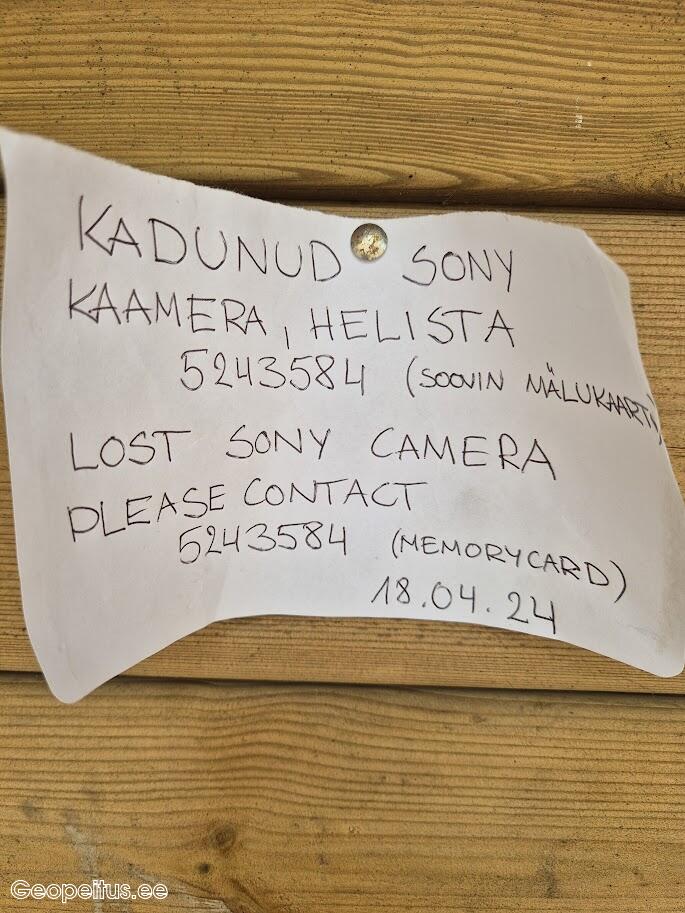 KADUNUD SONY
KAAMERA, HELISTA
5243584 (SOOVIN MÄLUKAARTI)
LOST SONY CAMERA
PLEASE CONTACT
5243584 (MEMORYCARD)
18.04.24
Geopeitus.ee